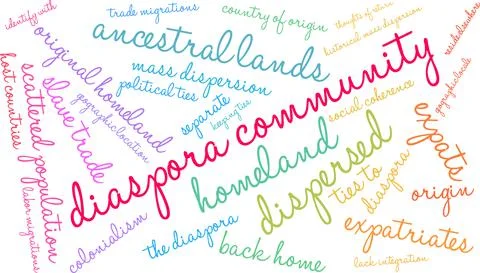 identify with
trade migrations
country of origin
thoughts of return
historical mass dispersion
reside elsewhere
geographic locale
ancestral lands
original homeland
mass dispersion
political ties
geographic location
host countries
scattered population
slave trade
separate
keeping ties
social coherence
diaspora community
homeland
dispersed
expats
origin
ties to
diaspora
labor migrations
colonialism
the diaspora
back home
expatriates
lack integration